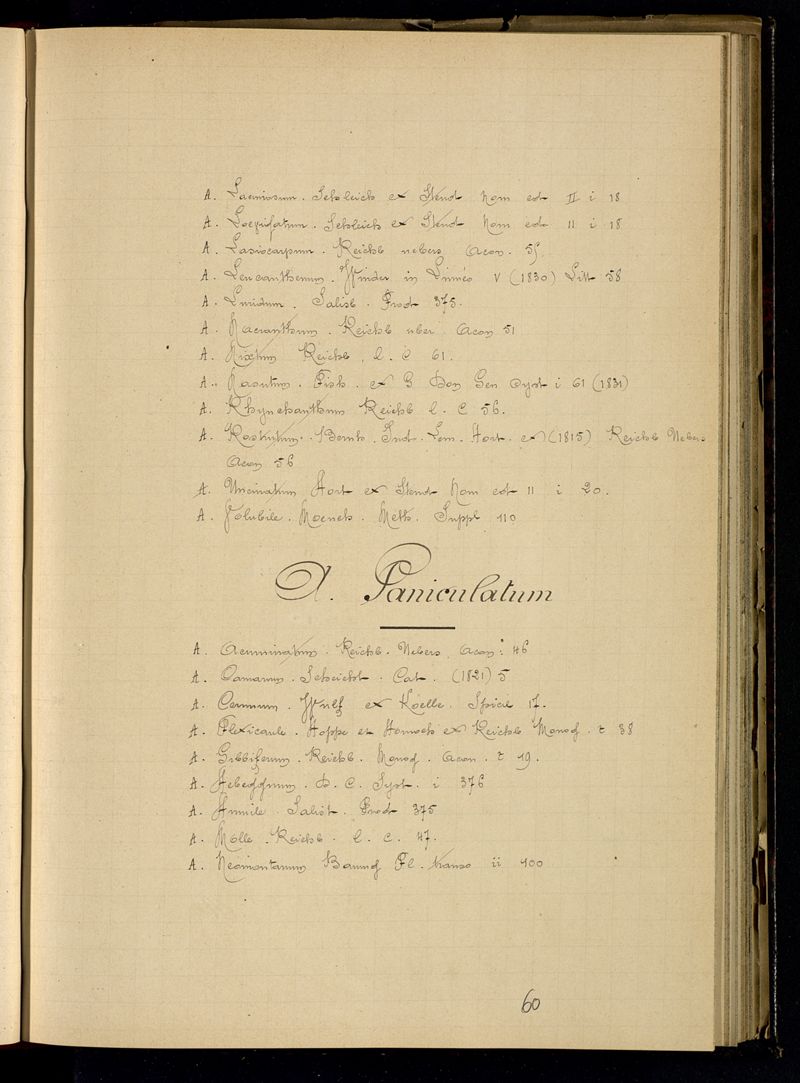 A. Laciniosum. Schleich ex Steud Nom edt II i 18
A. Schleich ex Steud Nom edt II i 18
A. Lasiocarpum. Reichb uebers Acon. 55
A. Leucanthemum. Winder in Linneo V (1830) Litt 58
A. Luridum. Salisb. Prod 375.
A. Macranthum. Reichb uber Acon 51
A. Mixtum Reichb. l. c 61.
A. Nasutum. Fish. ex G Don Gen Syst i 61 (1831)
A. Rhynchanthum Reichb l. C 56.
A. Bernh. Ind. Sem. Hort. ex (1815) Reichb Nebers
Acon 56
A. Uncinatum Hort ex Steud Nom edt II i 20.
A. Volubile. Moench. Meth. Suppl 110
A. Paniculatum
A. Acuminatum. Reichb. Nebers Acon: 46
A. Camarum. Schleicht. Cat. (1821) 5
A. Cernuum. Wulf ex Koelle. Spicil 17.
A. Flexicaule. Hoppe et Hornsch ex Reichb Monog. t 38
A. Gibbiferum. Reichb. Monog. Acon. t 19.
A. Hebegynum. D. C. Syst. i 376
A. Humile. Salist. Prod 375
A. Molle. Reichb. l. c. 47.
A. Neomontanum Baumg Fl. Transs ii 100
60